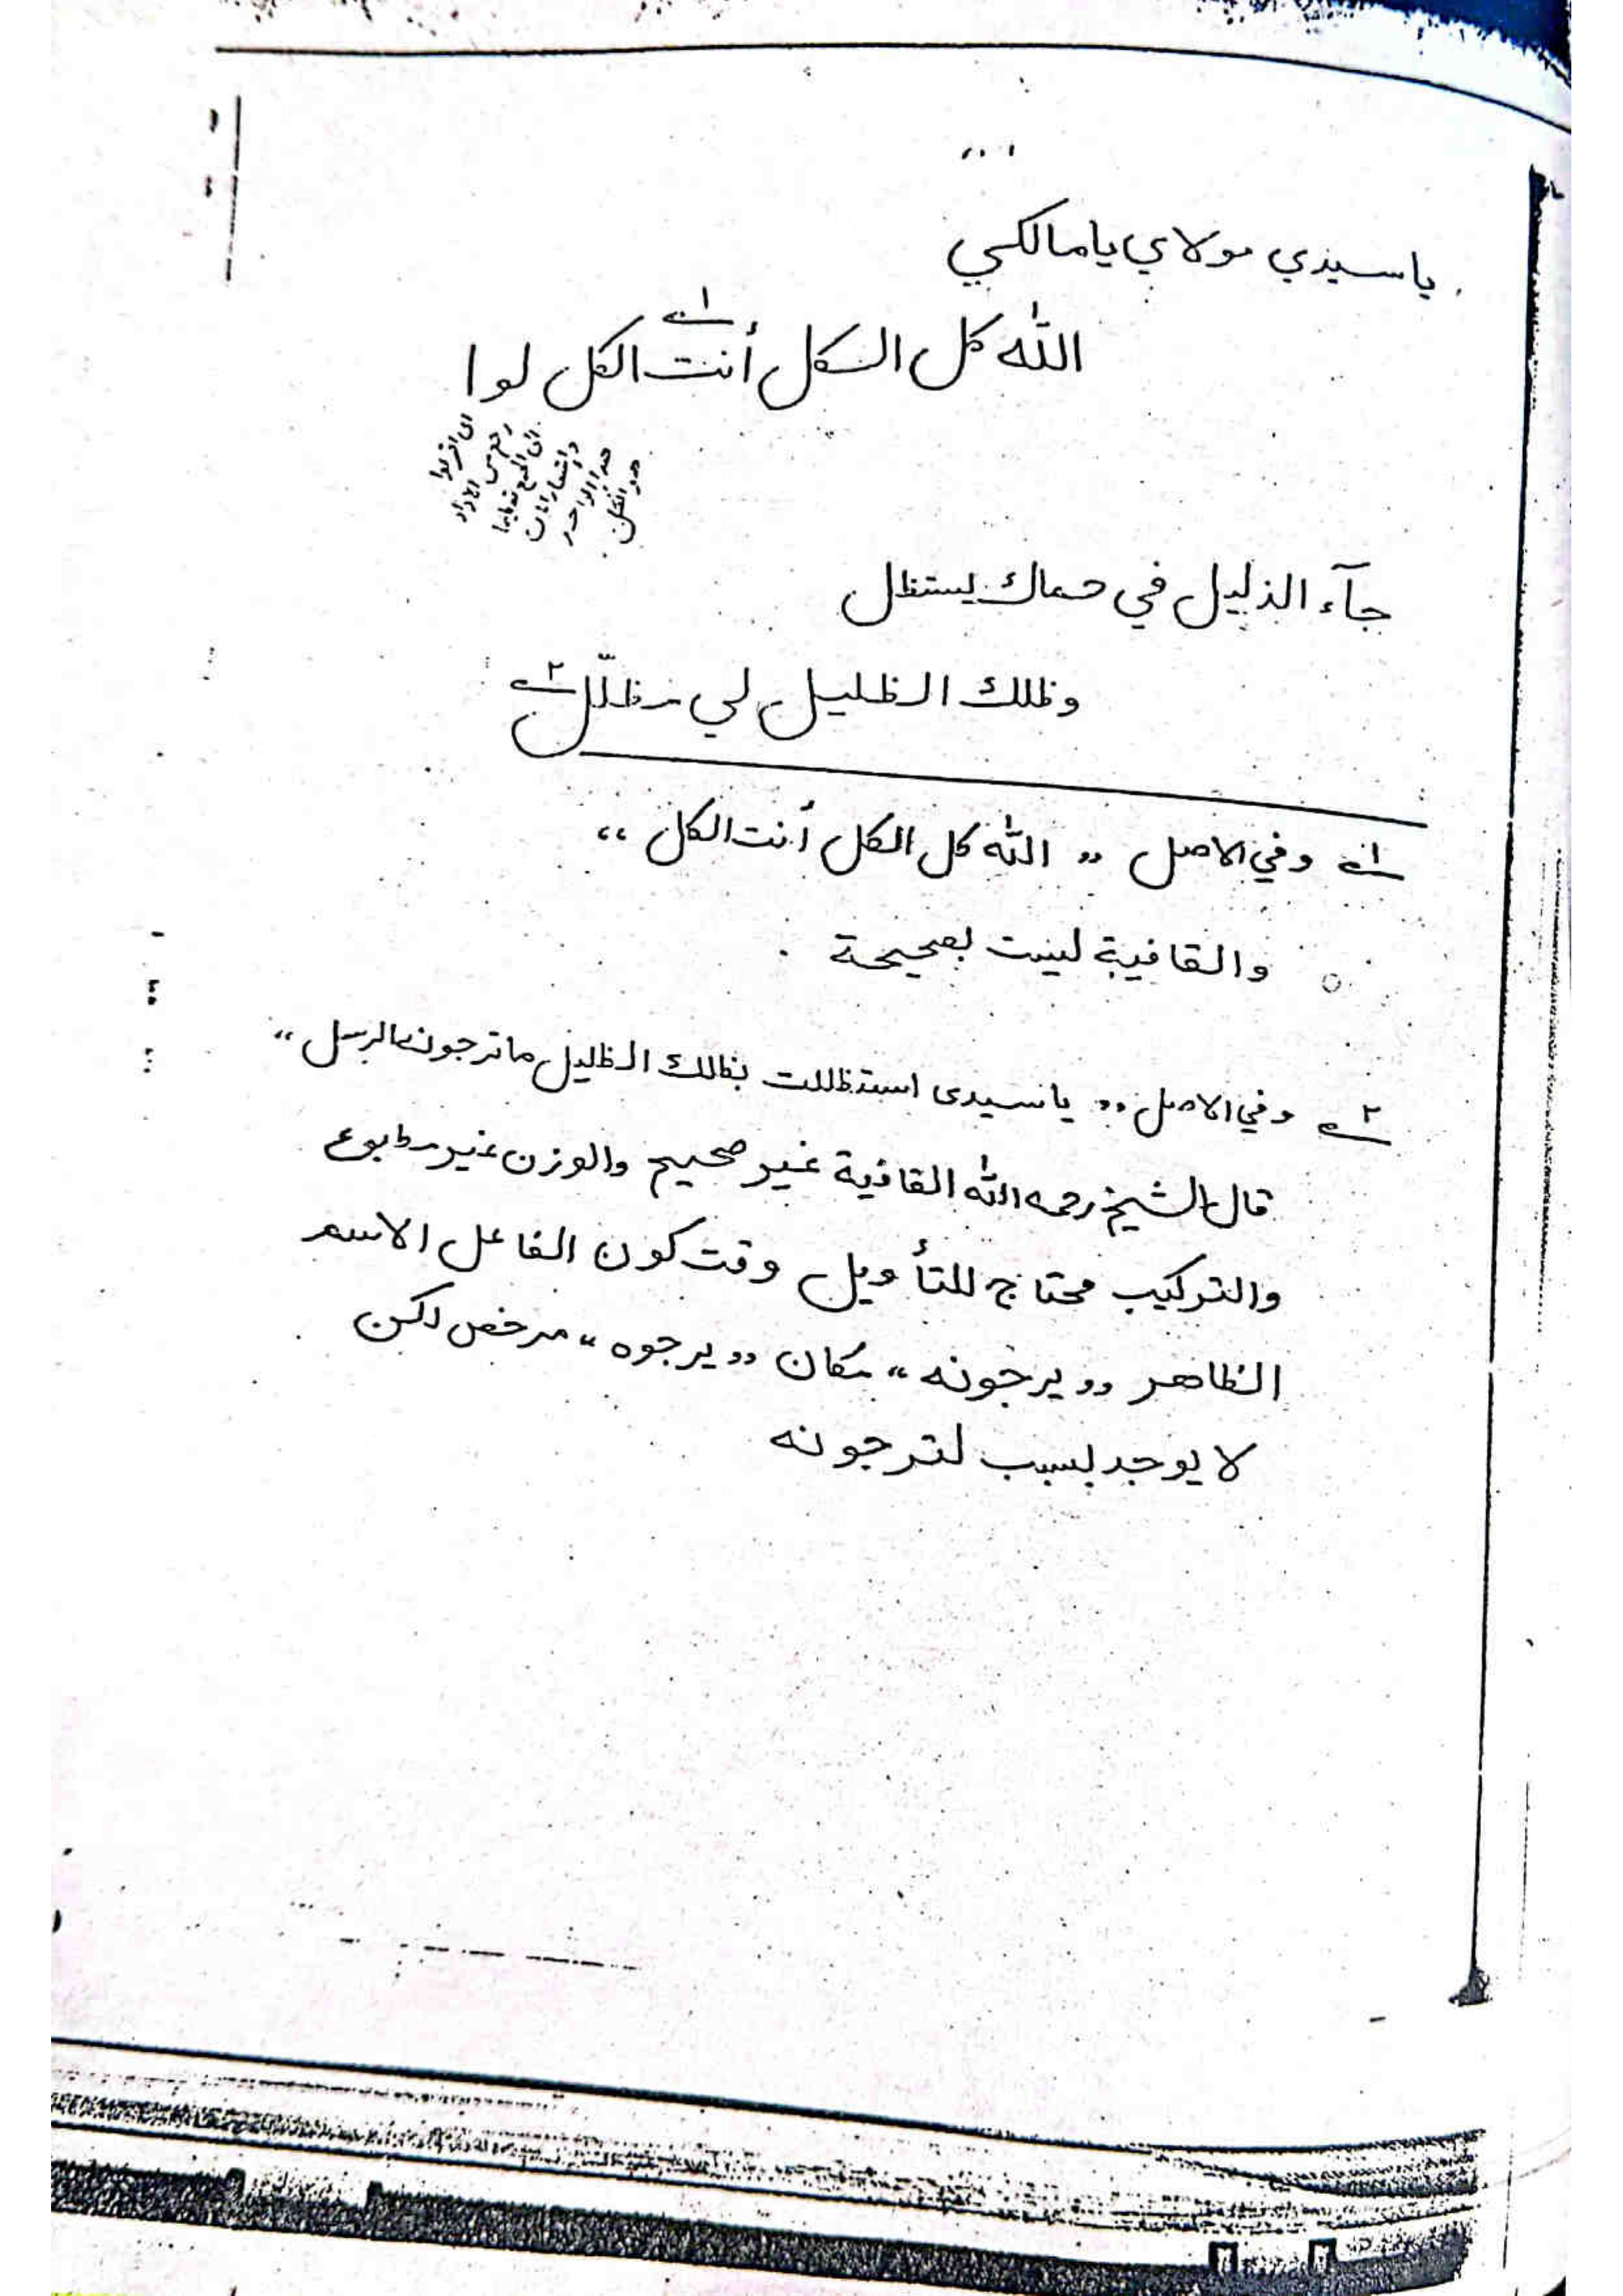 ياسيدي مولاي يا مالكي
الله كل الكل أنت الكل لوا
١
هو الكل
هذا الواحد
جآء الذليل في حماك يستظل
وظلك الظليل لي مظلّل ٢
١ وفي الاصل ,, الله كل الكل أنت الكل ,,
والقافية ليست بصحيحة .
٢ وفي الاصل ,, ياسيدى استظللت بظلك الظليل ما ترجونه الرسل ,,
قال الشيخ رحمه الله القافية غير صحيح والوزن غير مطبوع
والتركيب محتاج للتأويل وقت كون الفاعل الاسم
الظاهر ,, يرجونه ,, مكان ,, يرجوه ,, مرخص لكن
لا يوجد لسبب لترجونه